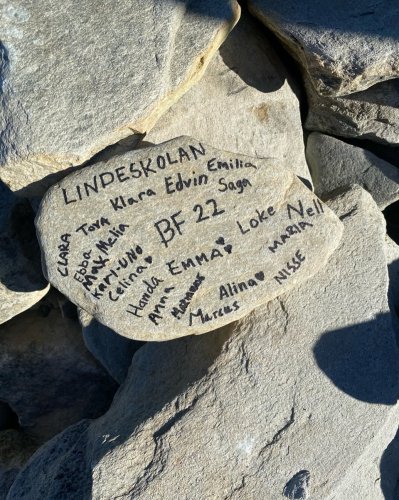 LINDESKOLAN
Emilia
Klara Edvin Saga
BF 22
Loke Nell
MARIA
NISSE
CLARA Tova
Ebba
Max Melia
Karl-UNO
Celina
Handa EMMA
Anna
Alina
Marcus